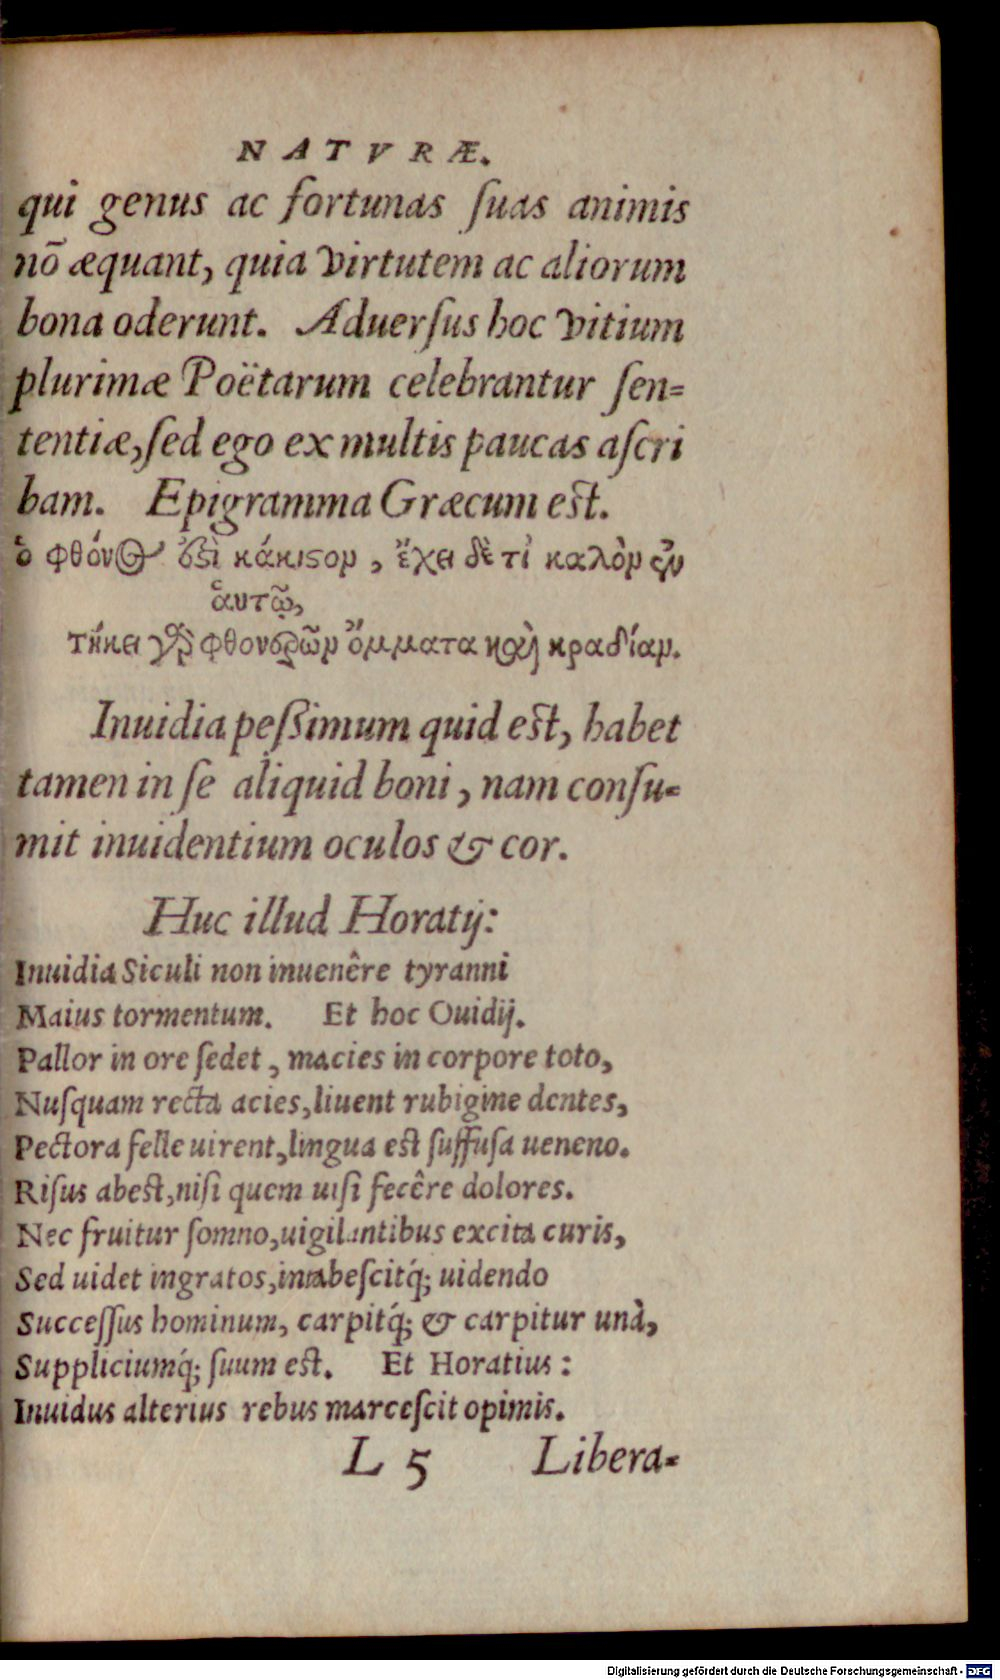 NATVRÆ.
qui genus ac fortunas ſuas animis
nō æquant, quia virtutem ac aliorum
bona oderunt. Aduerſus hoc vitium
plurimæ Poëtarum celebrantur ſen=
tentiæ, ſed ego ex multis paucas aſcri
bam. Epigramma Græcum est.
ὁ φθόνος ἐστὶ κάκιστον, ἔχει δέ τι καλὸν ἐν
ἁυτῷ,
τήκει γὰρ φθονερῶν ὄμματα καὶ κραδίαν.
Inuidia peßimum quid est, habet
tamen in ſe aliquid boni, nam conſu=
mit inuidentium oculos & cor.
Huc illud Horatij:
Inuidia Siculi non inuenêre tyranni
Maius tormentum. Et hoc Ouidij.
Pallor in ore ſedet, macies in corpore toto,
Nuſquam recta acies, liuent rubigine dentes,
Pectora felle uirent, lingua est ſuffuſa ueneno.
Riſus abest, niſi quem uiſi fecêre dolores.
Nec fruitur ſomno, uigilantibus excita curis,
Sed uidet ingratos, intabeſcitq́; uidendo
Succeſſus hominum, carpitq́; & carpitur unà,
Suppliciumq́; ſuum est. Et Horatius:
Inuidus alterius rebus marceſcit opimis.
L 5 Libera=
Digitalisierung gefördert durch die Deutsche Forschungsgemeinschaft - DFG